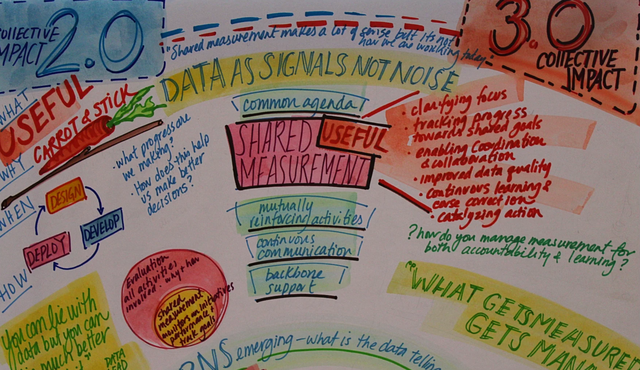 COLLECTIVE
IMPACT
2.0
"Shared measurement makes a lot of sense but it's not
how we are working today"
3.0
COLLECTIVE
IMPACT
DATA AS SIGNALS NOT NOISE
WHAT
WHY
WHEN
HOW
USEFUL
CARROT & STICK
• what progress are
we making?
• How does this help
us make better
decisions?
DESIGN
DEVELOP
DEPLOY
common agenda
SHARED
USEFUL
MEASUREMENT
mutually
reinforcing activities
continuous
communication
backbone
support
• clarifying focus
• tracking progress
towards shared goals
• enabling coordination
& collaboration
• improved data quality
• continuous learning &
corse correction
• catalyzing action
? how do you manage measurement for
both accountability & learning?
Evaluation
all activities
involved. why & how
Shared
measurement
initiatives
performance &
You can lie with
data but you can
much better
DATA
"WHAT GETS MEASURED
GETS MAN
RNS emerging - what is the data telling